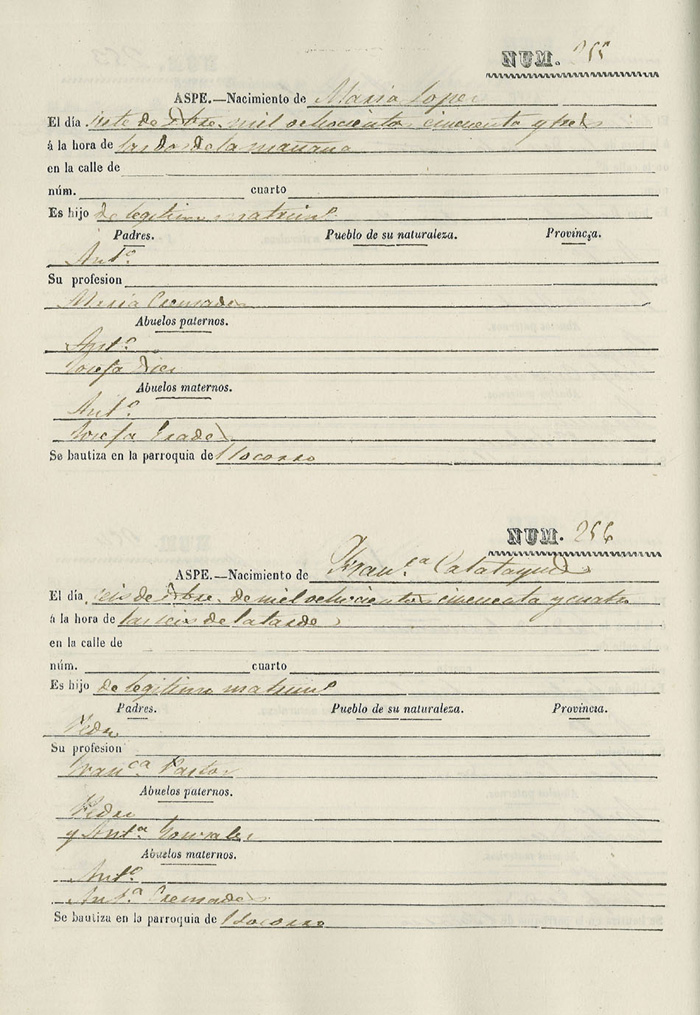 NUM. 255
ASPE.—Nacimiento de Maria Lopez
El día siete de Obre. mil ochocientos cincuenta y tres
á la hora de las dos de la mañana
en la calle de
núm. cuarto
Es hijo de legitimo matrim.º
Padres. Pueblo de su naturaleza. Provincia.
Ant.º
Su profesion
Maria Cremades
Abuelos paternos.
Ant.º
Josefa
Abuelos maternos.
Ant.º
Josefa Prades
Se bautiza en la parroquia de Socorro
NUM. 256
ASPE.—Nacimiento de Fran.ca Calatayud
El día seis de Obre. de mil ochocientos cincuenta y cuatro
á la hora de las seis de la tarde
en la calle de
núm. cuarto
Es hijo de legitimo matrim.º
Padres. Pueblo de su naturaleza. Provincia.
Pedro
Su profesion
Fran.ca Pastor
Abuelos paternos.
Pedro
y Ant.a Gonzalez
Abuelos maternos.
Ant.º
Ant.a Cremades
Se bautiza en la parroquia de Socorro